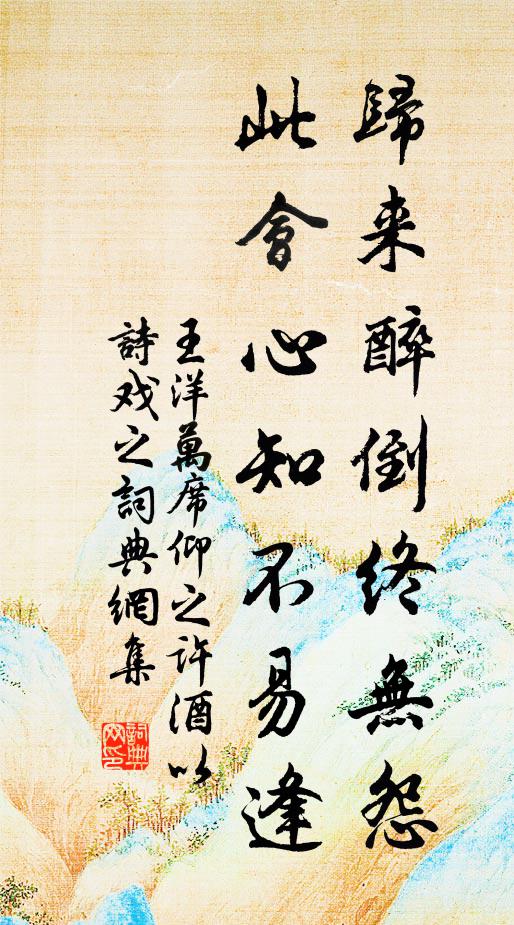 歸来醉倒終無怨
此會心知不易逢
王洋萬席仰之許酒以
詩戏之詞典網集
詞典網印